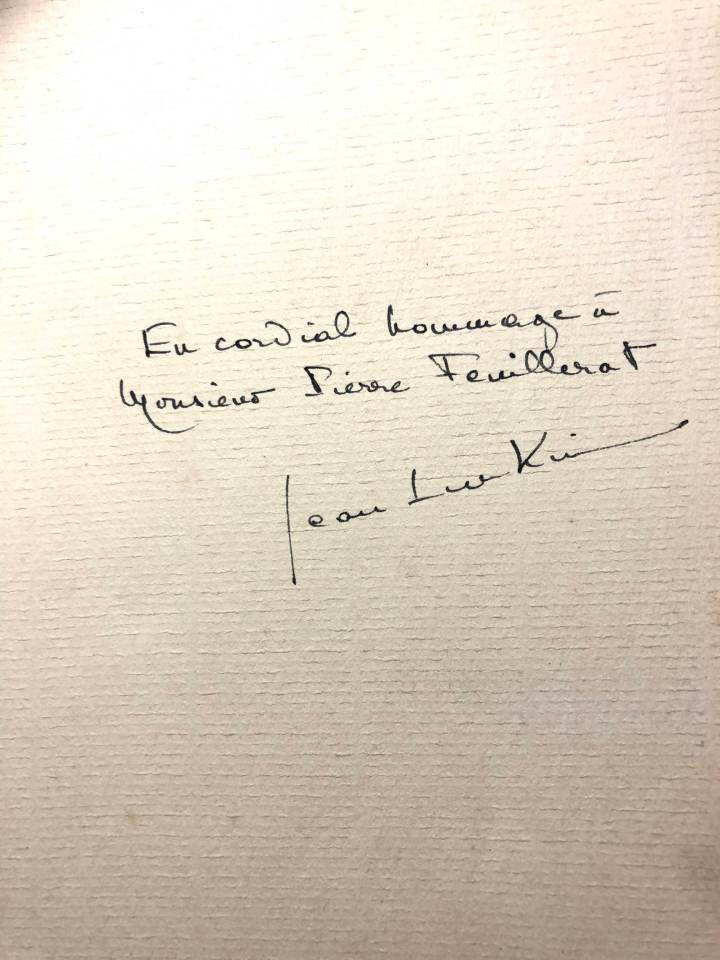 En cordial hommage à
Monsieur Pierre Feuillerat
Jean